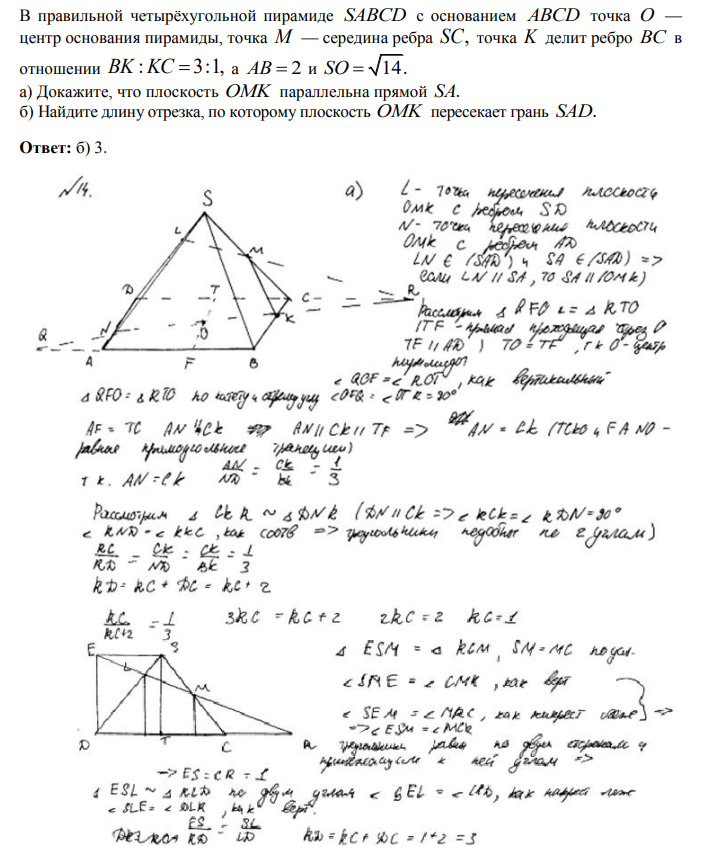 В правильной четырёхугольной пирамиде SABCD с основанием ABCD точка O —
центр основания пирамиды, точка M — середина ребра SC, точка K делит ребро BC в
отношении BK : KC = 3:1, а AB = 2 и SO = √14.
а) Докажите, что плоскость OMK параллельна прямой SA.
б) Найдите длину отрезка, по которому плоскость OMK пересекает грань SAD.
Ответ: б) 3.
№14.
S
L
M
D
T
C
R
K
N
O
Q
A
F
B
а) L - точка пересечения плоскости
OMK с ребром SD
N - точка пересечения плоскости
OMK с ребром AD
LN ∈ (SAD) и SA ∈ (SAD) =>
если LN || SA, то SA || (OMK)
Рассмотрим Δ QFO и = Δ RTO
(TF - прямая проходящая через O
TF || AD) TO = TF, т к O - центр
пирамиды
∠ QOF = ∠ ROT, как вертикальный
Δ QFO = Δ RTO по катету и острому углу ∠OFQ = ∠OTR = 90°
AF = TC AN || CK AN || CK || TF => AN = CK (TCKO и FANO -
равные прямоугольные трапеции)
т к. AN = CK AN/ND = CK/BK = 1/3
Рассмотрим Δ CKR ~ Δ DNR (DN || CK => ∠ RCK = ∠ RDN = 90°
∠ RND = ∠ RKC, как соотв => треугольники подобные по 2 углам)
RC/RD = CK/ND = CK/BK = 1/3
RD = RC + DC = RC + 2
RC/RC+2 = 1/3 3RC = RC + 2 2RC = 2 RC = 1
E S
L
M
D T C R
Δ ESM = Δ RCM, SM = MC по усл.
∠ SME = ∠ CMR, как верт
∠ SEM = ∠ MRC, как накрест лежащ =>
=> ∠ ESM = ∠ MCR
треугольники равны по двум сторонам и
прилежащим к ней углам =>
=> ES = CR = 1
Δ ESL ~ Δ RLD по двум углам ∠ SEL = ∠ LRD, как накрест леж
∠ SLE = ∠ DLR, как верт.
ES/RD = SL/LD RD = RC + DC = 1 + 2 = 3